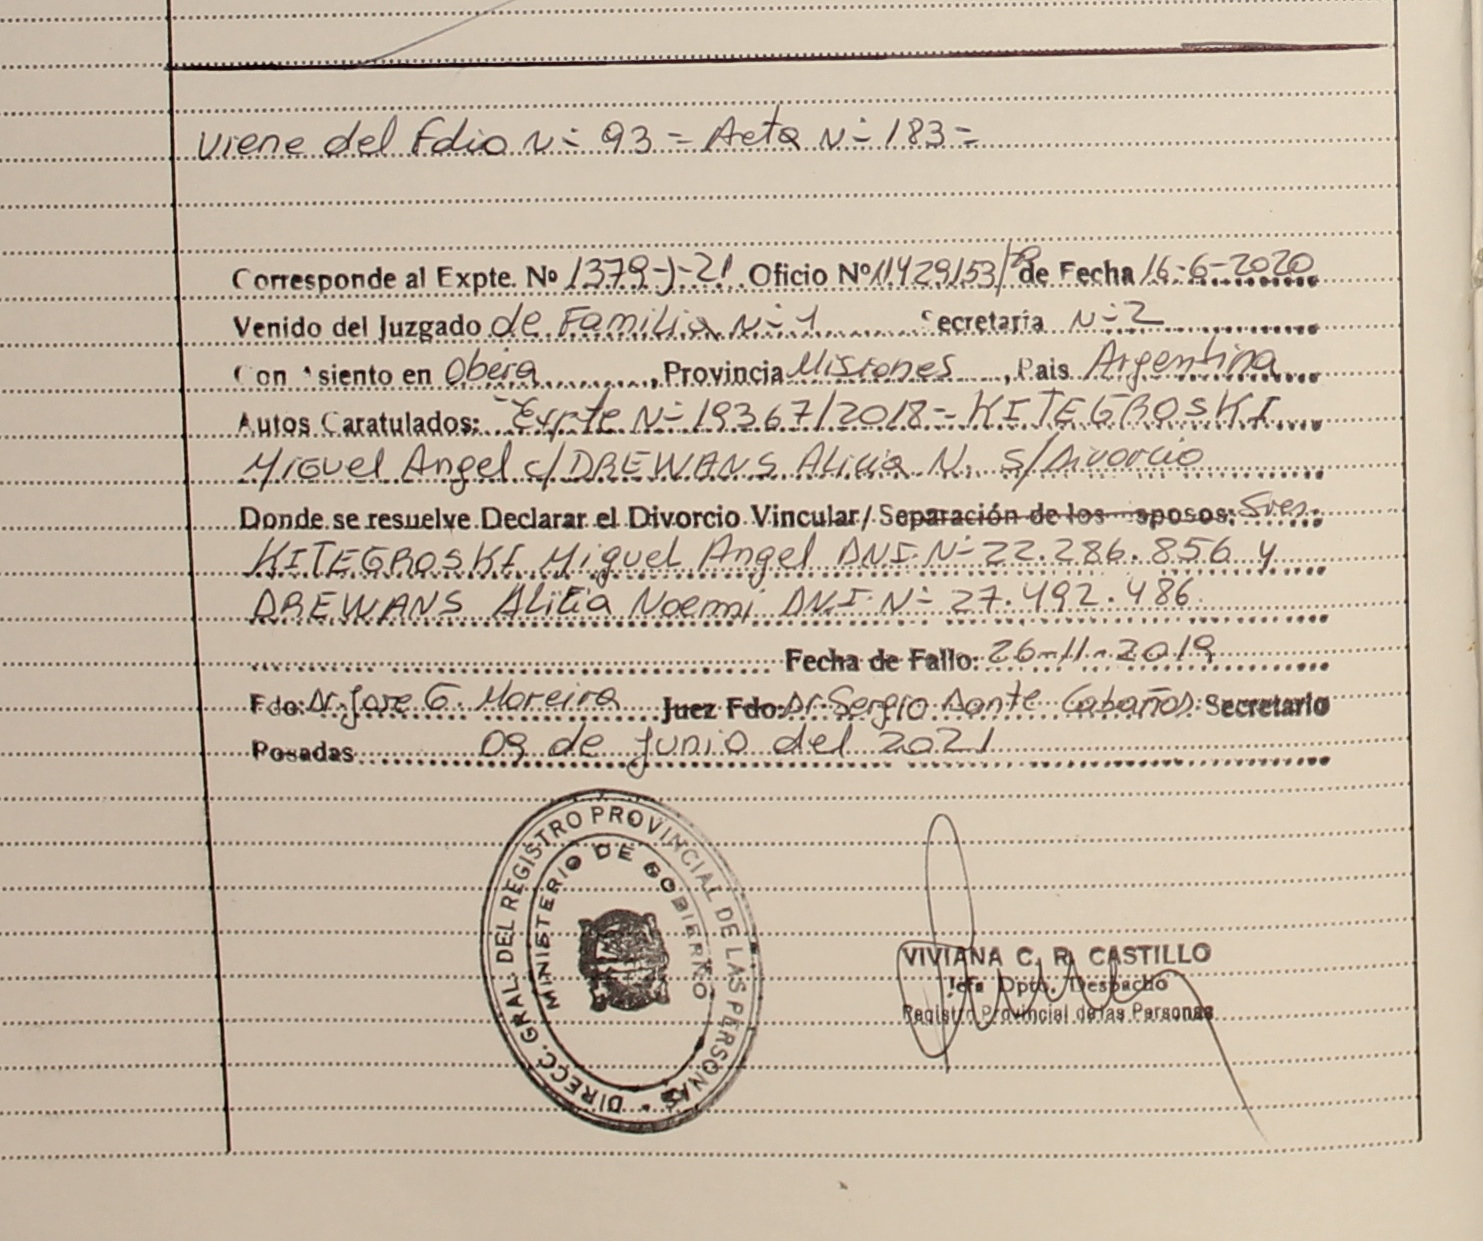 Viene del Folio Nº 93 = Acta Nº 183 =
Corresponde al Expte. Nº 1379-J-21 Oficio Nº 11429153/ de Fecha 16-6-2020
Venido del Juzgado de Familia Nº 1 Secretaria Nº 2
Con Asiento en Oberá, Provincia Misiones, Pais Argentina
Autos Caratulados: "Expte Nº 19367/2018 = KITEGROSKI
Miguel Angel c/ DREWANS Alicia N. s/Divorcio
Donde se resuelve Declarar el Divorcio Vincular/ Separación de los esposos: Sres.
KITEGROSKI Miguel Angel DNI Nº 22.286.856 y
DREWANS Alicia Noemi DNI Nº 27.492.486
Fecha de Fallo: 26-11-2019
Fdo: Dr. Jose G. Moreira Juez Fdo: Dr. Sergio Dante Cabañas Secretario
Posadas 09 de junio del 2021
DIRECC. GRAL. DEL REGISTRO PROVINCIAL DE LAS PERSONAS
MINISTERIO DE GOBIERNO
VIVIANA C. R. CASTILLO
Jefa Dpto. Despacho
Registro Provincial de las Personas